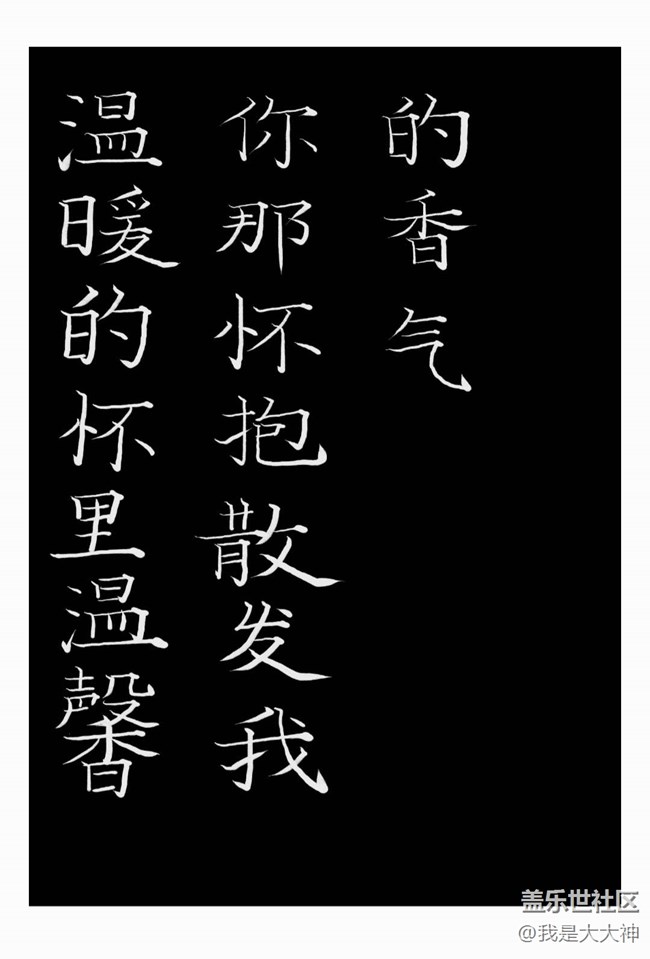 温暖的怀里温馨
你那怀抱散发我
的香气
盖乐世社区
@我是大大神